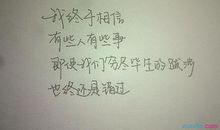 我终于相信
有些人有些事
即使我们穷尽毕生的脚步
也终还是错过